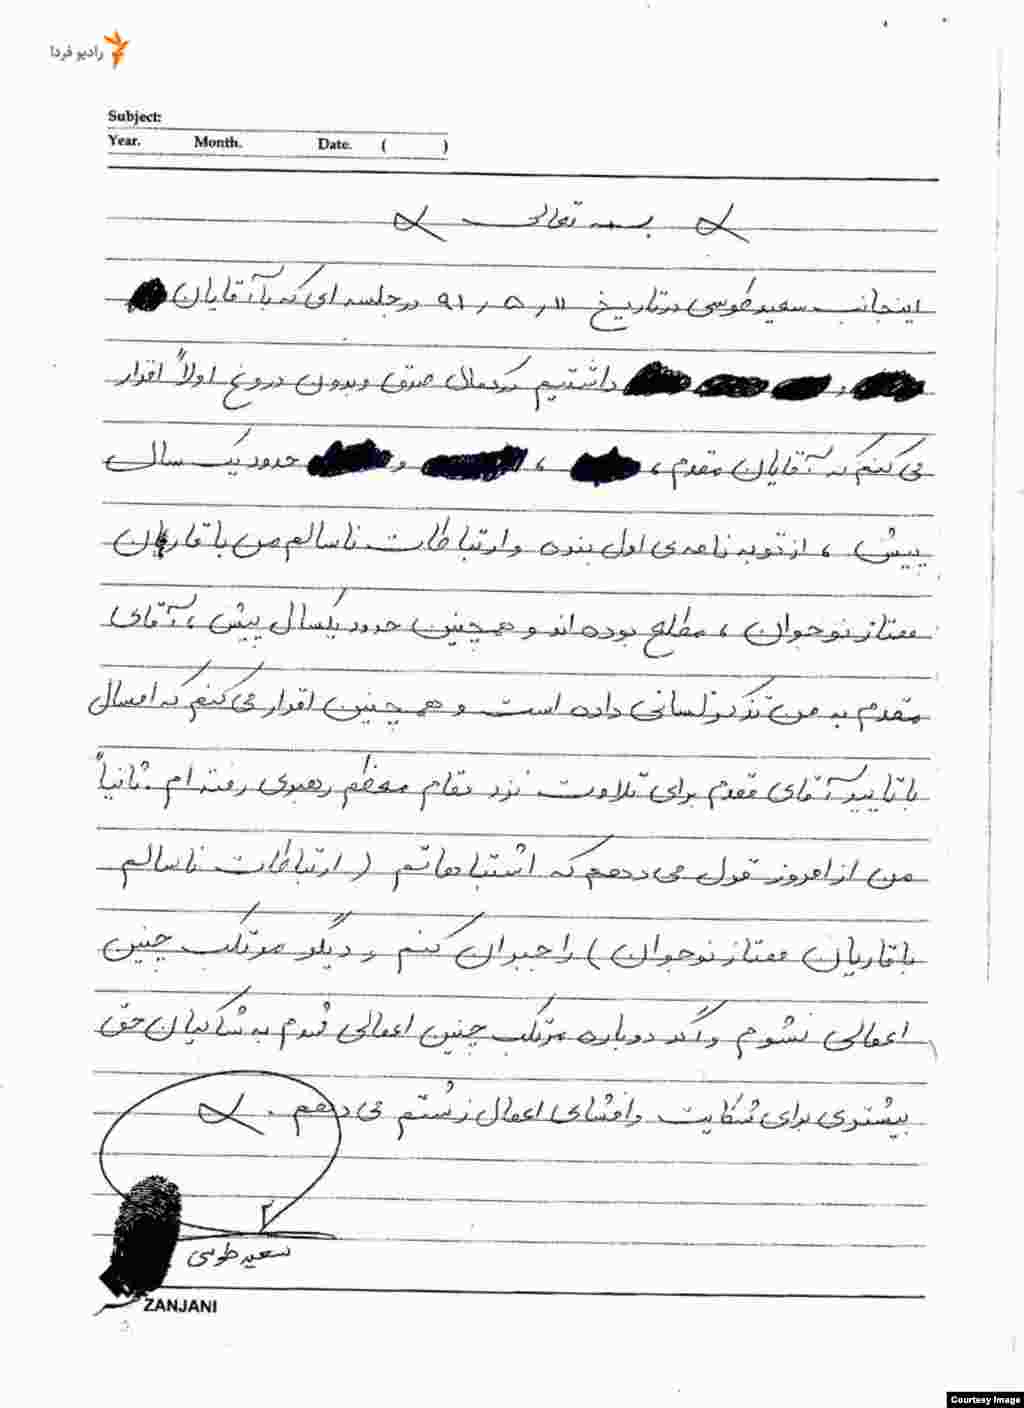 رادیو فردا
Subject:
Year. Month. Date. ( )
بسمه تعالی
اینجانب سعید طوسی در تاریخ ۹۱٫۵٫۱۱ در جلسه ای که با آقایان
و داشتیم در کمال صدق و بدون دروغ اولاً اقرار
می کنم که آقایان مقدم ، ، و حدود یک سال
پیش ، از توبه نامه ی اول بنده و ارتباطات ناسالم من با قاریان
ممتاز نوجوان ، مطلع بوده اند و همچنین حدود یکسال پیش ، آقای
مقدم به من تذکر لسانی داده است و همچنین اقرار می کنم که امسال
با تایید آقای مقدم برای تلاوت نزد مقام معظم رهبری رفته ام . ثانیاً
من از امروز قول می دهم که اشتباهاتم ( ارتباطات ناسالم
با قاریان ممتاز نوجوان ) را جبران کنم و دیگر مرتکب چنین
اعمالی نشوم و اگر دوباره مرتکب چنین اعمالی شدم به شاکیان حق
بیشتری برای شکایت و افشای اعمال زشتم می دهم .
سعید طوسی
ZANJANI
Courtesy Image